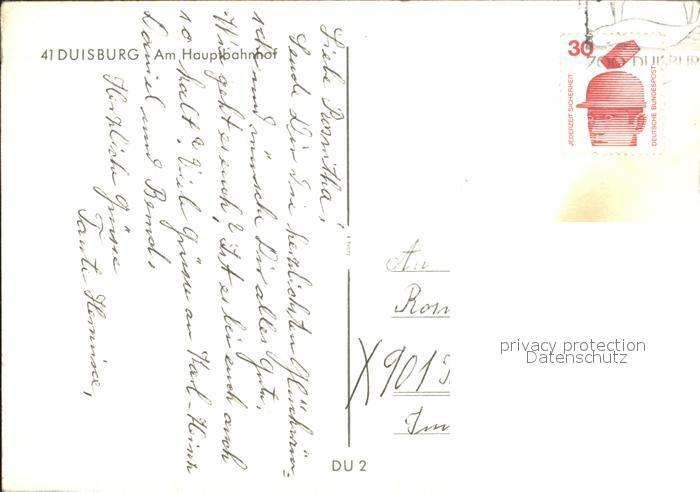 41 DUISBURG - Am Hauptbahnhof
Liebe Roswitha!
Sende Dir die herzlichsten Glückwün-
sche und wünsche Dir alles Gute.
Wie geht es euch? Ist es bei euch auch
so kalt? Viele Grüsse an Karl-Heinz
Daniel und Bernd.
Herzliche Grüsse
Tante Hermine,
30
JEDERZEIT SICHERHEIT
DEUTSCHE BUNDESPOST
DUISBUR
An
Rosw
X 901
Im
privacy protection
Datenschutz
DU 2